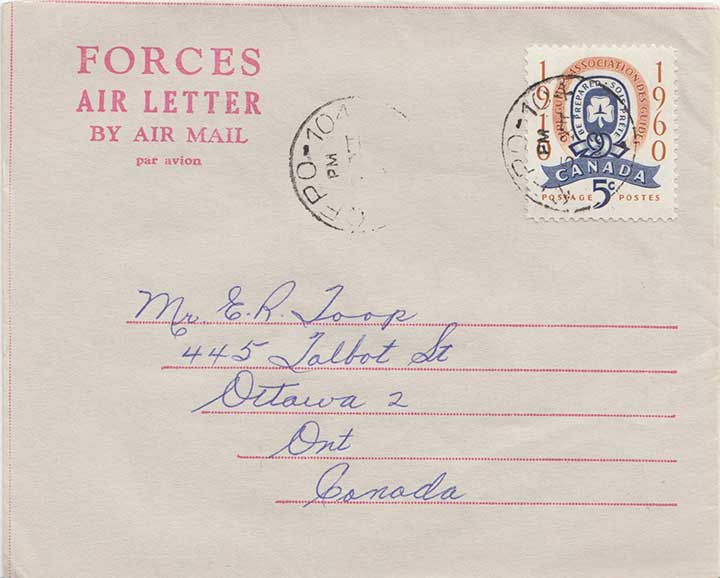 FORCES
AIR LETTER
BY AIR MAIL
par avion
CFPO-104
PM
1910 1960
GIRL GUIDES ASSOCIATION DES GUIDES
BE PREPARED · SOIS PRÊTE
CANADA
POSTAGE 5c POSTES
CFPO-104
PM
Mr. E.R. Toop
445 Talbot St
Ottawa 2
Ont
Canada